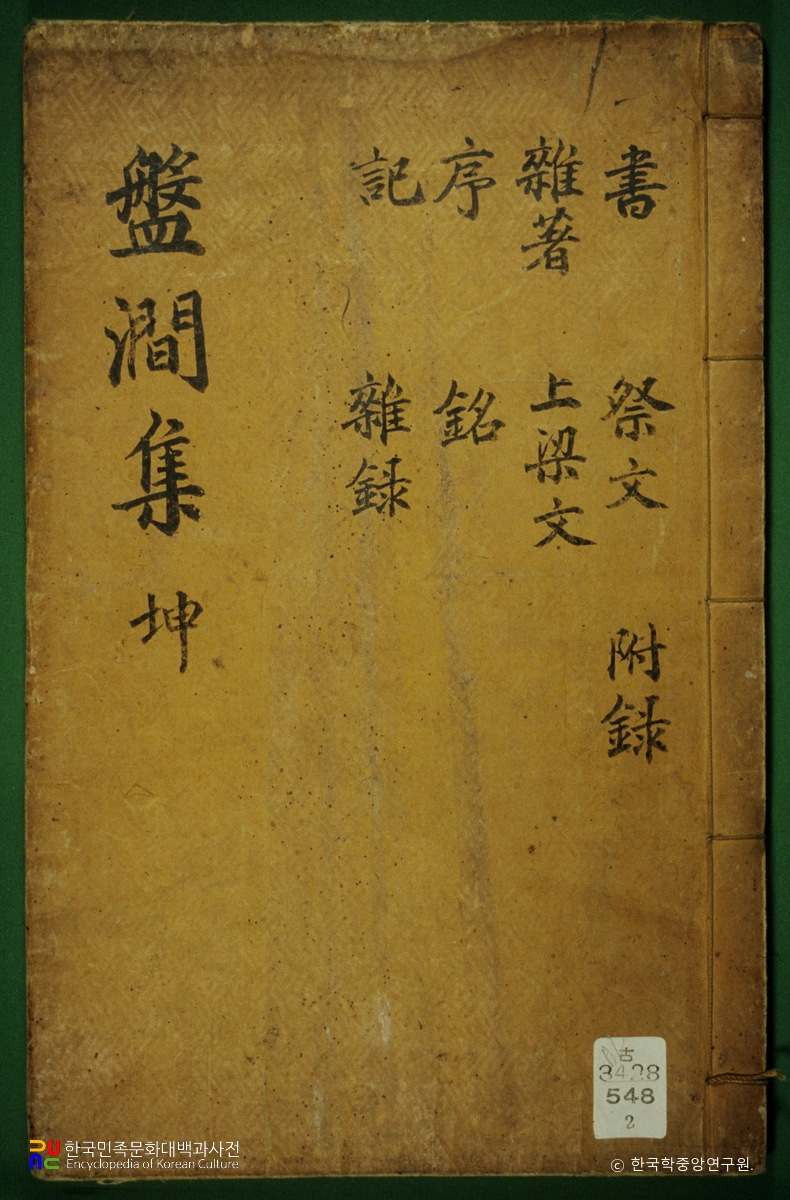 書 祭文 附録
雜著 上梁文
序 銘
記 雜録
盤澗集 坤
古
3428
548
2
한국민족문화대백과사전
Encyclopedia of Korean Culture
© 한국학중앙연구원